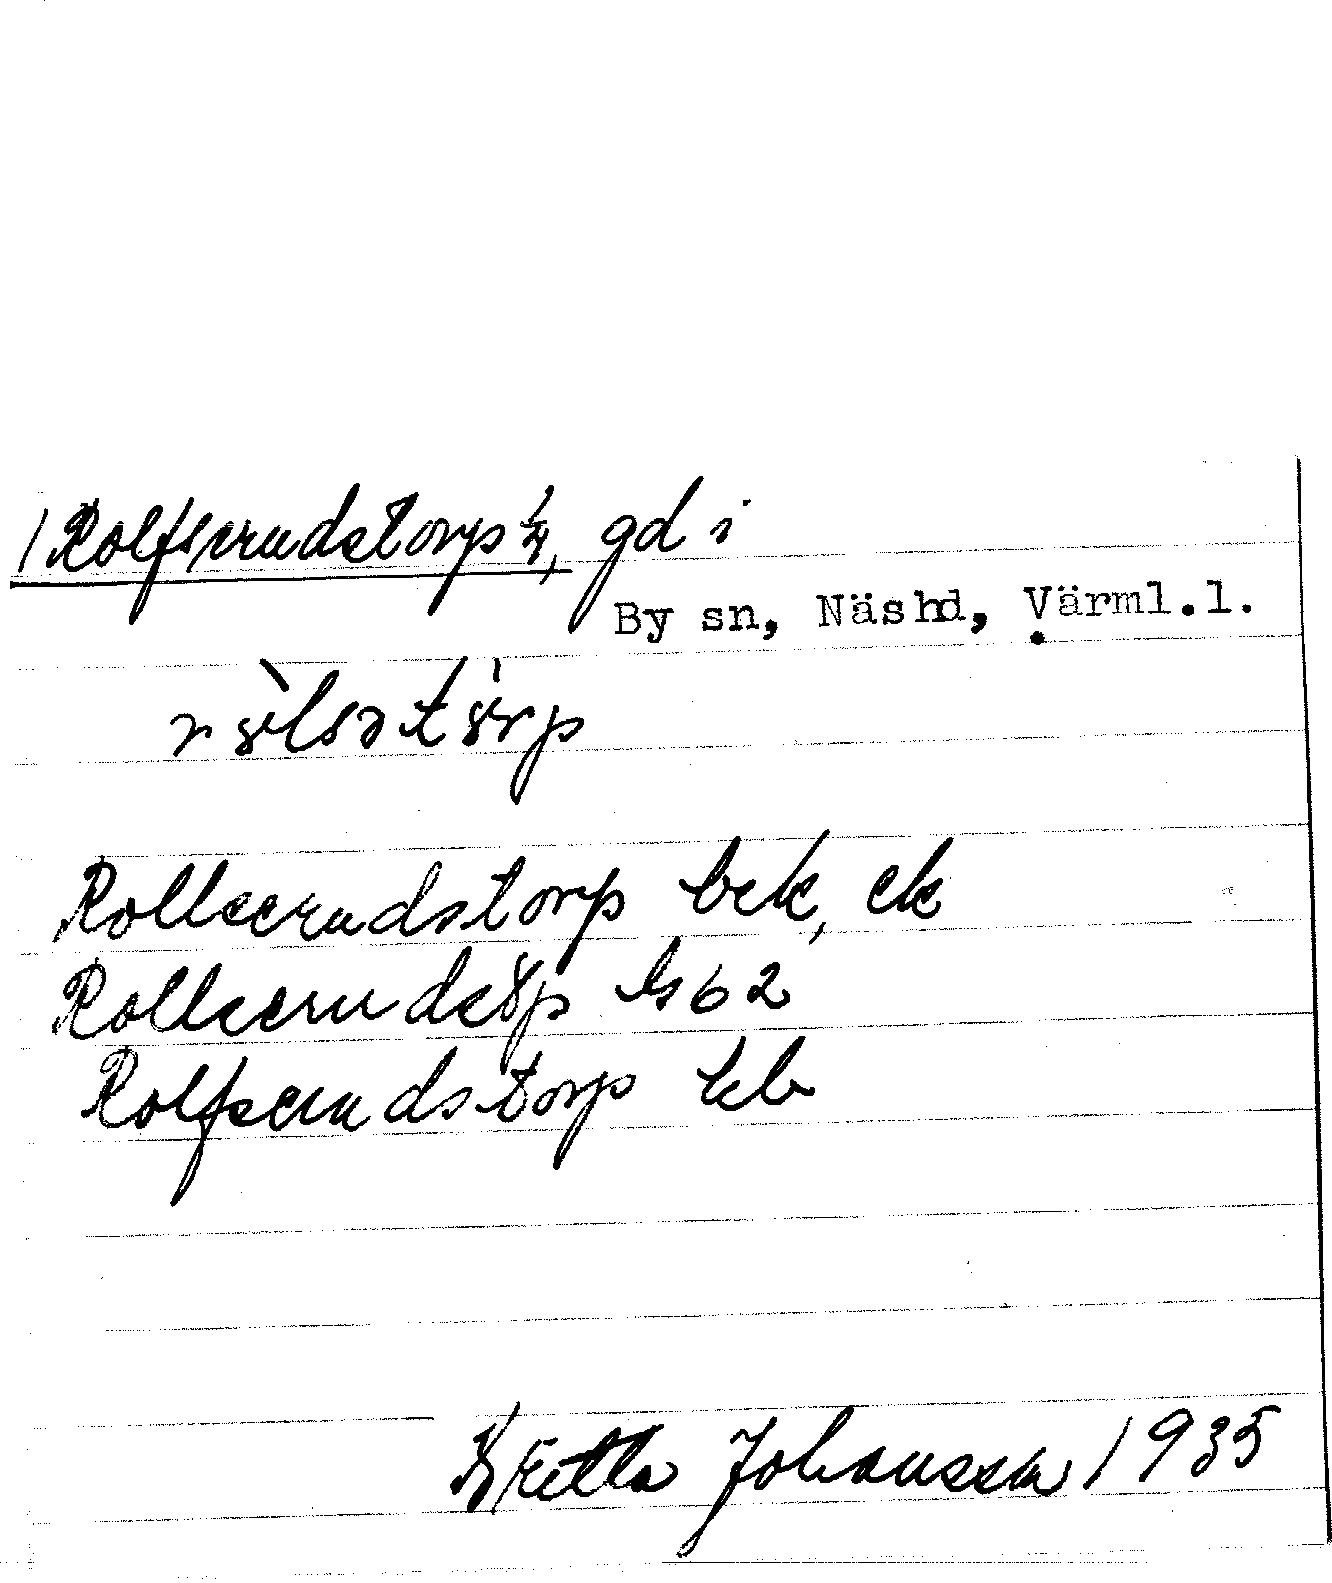 1 Rolfserudstorp 1/4, gd i
By sn, Näshd, Värml.l.
Rollserudstorp bck, ck
Rollserudstp
Rolfserudstorp kb
Johansson 1935